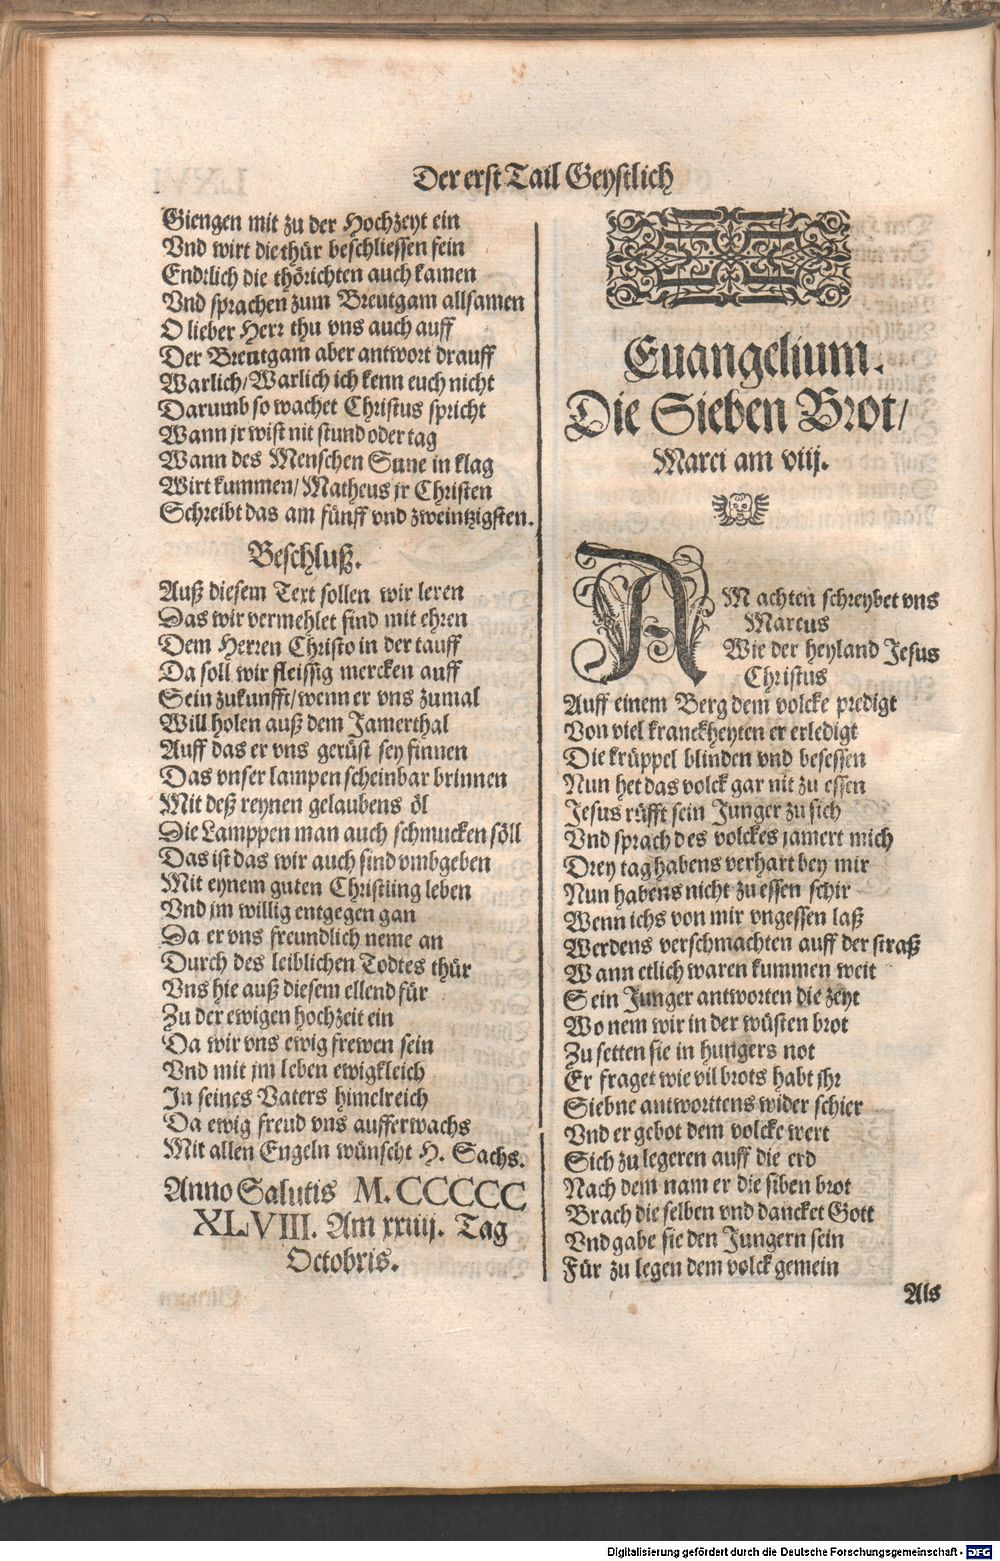 Der erst Tail Geystlich
Giengen mit zu der Hochzeyt ein
Vnd wirt die thür beschliessen fein
Endtlich die thörichten auch kamen
Vnd sprachen zum Breutgam allsamen
O lieber Herr thu vns auch auff
Der Breutgam aber antwort drauff
Warlich/Warlich ich kenn euch nicht
Darumb so wachet Christus spricht
Wann jr wist nit stund oder tag
Wann des Menschen Sune in klag
Wirt kummen/Matheus jr Christen
Schreibt das am fünff vnd zweintzigsten.
Beschluß.
Auß diesem Text sollen wir leren
Das wir vermehlet sind mit ehren
Dem Herren Christo in der tauff
Da soll wir fleissig mercken auff
Sein zukunfft/wenn er vns zumal
Will holen auß dem Jamerthal
Auff das er vns gerüst sey finnen
Das vnser lampen scheinbar brinnen
Mit deß reynen gelaubens öl
Die Lamppen man auch schmucken söll
Das ist das wir auch sind vmbgeben
Mit eynem guten Christling leben
Vnd jm willig entgegen gan
Da er vns freundlich neme an
Durch des leiblichen Todtes thür
Vns hie auß diesem ellend für
Zu der ewigen hochzeit ein
Da wir vns ewig frewen sein
Vnd mit jm leben ewigkleich
In seines Vaters himelreich
Da ewig freud vns aufferwachs
Mit allen Engeln wünscht H. Sachs.
Anno Salutis M. CCCCC
XLVIII. Am xxiiij. Tag
Octobris.
Euangelium.
Die Sieben Brot/
Marci am viij.
AM achten schreybet vns
Marcus
Wie der heyland Jesus
Christus
Auff einem Berg dem volcke predigt
Von viel kranckheyten er erledigt
Die krüppel blinden vnd besessen
Nun het das volck gar nit zu essen
Jesus rüfft sein Junger zu sich
Vnd sprach des volckes jamert mich
Drey tag habens verhart bey mir
Nun habens nicht zu essen schir
Wenn ichs von mir vngessen laß
Werdens verschmachten auff der straß
Wann etlich waren kummen weit
Sein Junger antworten die zeyt
Wo nem wir in der wüsten brot
Zu setten sie in hungers not
Er fraget wie vil brots habt jhr
Siebne antworttens wider schier
Vnd er gebot dem volcke wert
Sich zu legeren auff die erd
Nach dem nam er die siben brot
Brach die selben vnd dancket Gott
Vnd gabe sie den Jungern sein
Für zu legen dem volck gemein
Als
Digitalisierung gefördert durch die Deutsche Forschungsgemeinschaft - DFG